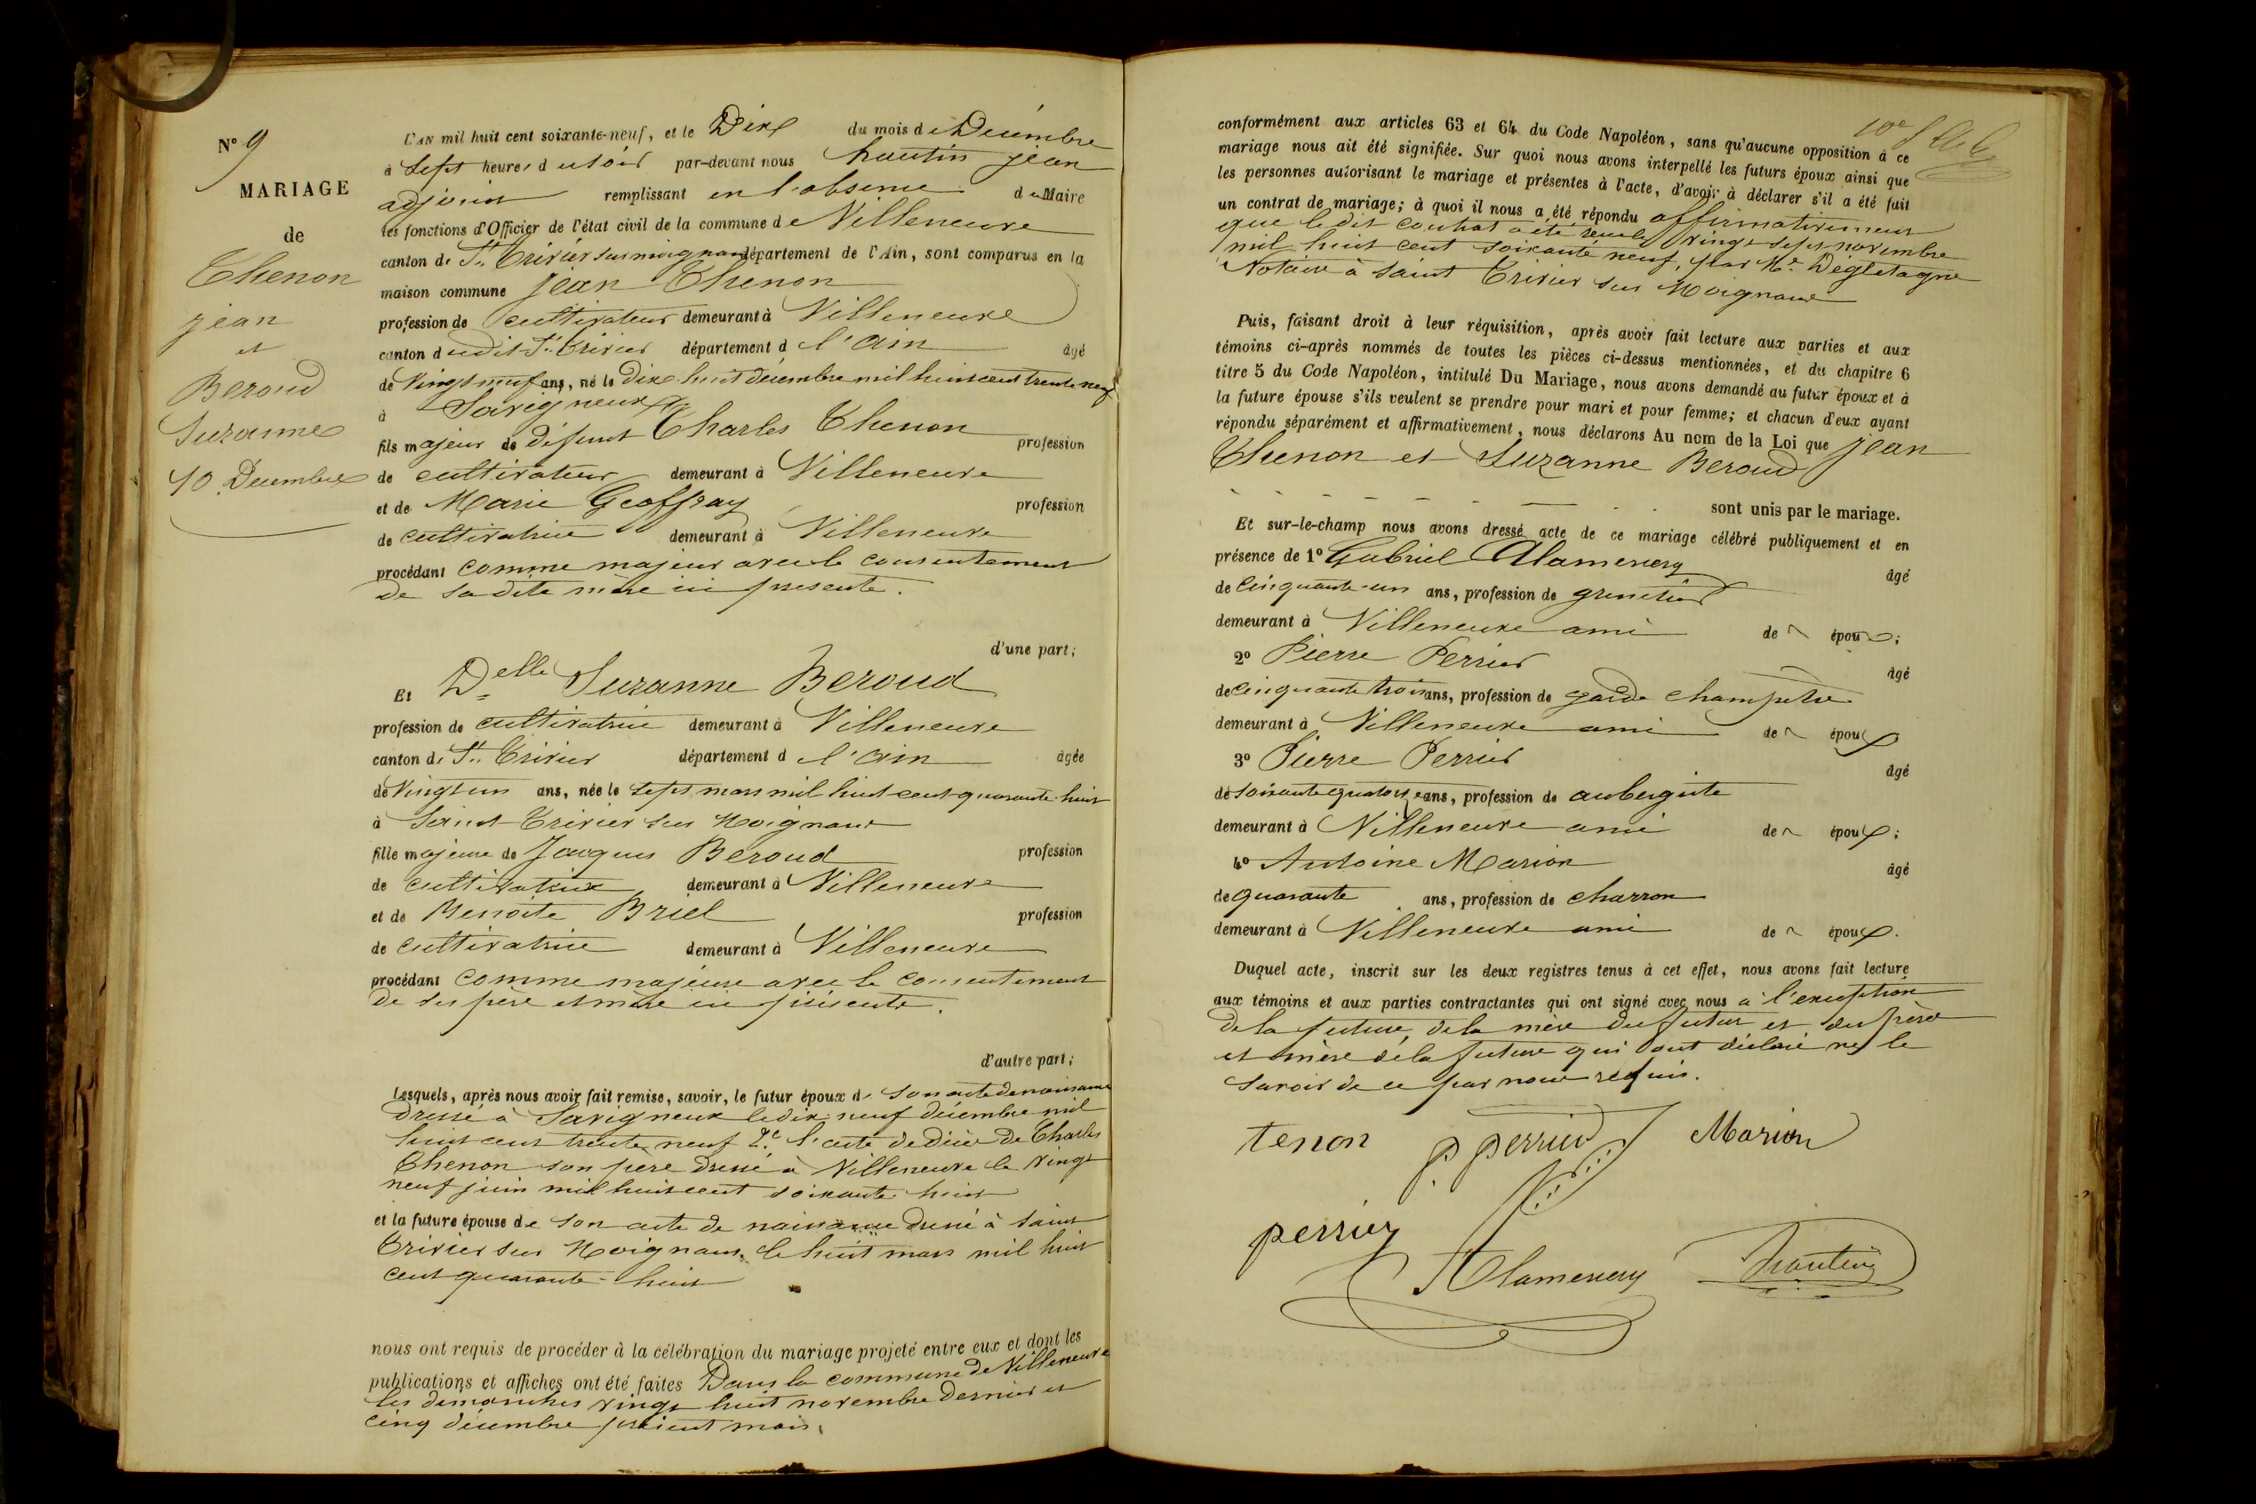 N° 9
MARIAGE
de
Thenon
jean
et
Beroud
Suzanne
10 Décembre
L'AN mil huit cent soixante-neuf, et le Dix du mois de Décembre
à sept heures du soir par-devant nous Trautin jean
adjoint remplissant en l'absence du Maire
les fonctions d'Officier de l'état civil de la commune de Villeneuve
canton de St. Trivier sur moignans département de l'Ain, sont comparus en la
maison commune Jean Thenon
profession de cultivateur demeurant à Villeneuve
canton dudit St. Trivier département d l'Ain âgé
de Vingt neuf ans, né le dix huit décembre mil huit cent trente neuf
à Savigneux
fils majeur de défunt Charles Thenon profession
de cultivateur demeurant à Villeneuve
et de Marie Geoffray profession
de cultivatrice demeurant à Villeneuve
procédant comme majeur avec le consentement
de sa dite mère ici présente.
d'une part;
Et Delle Suzanne Beroud
profession de cultivatrice demeurant à Villeneuve
canton de St. Trivier département d l'Ain âgée
de Vingt un ans, née le sept mars mil huit cent quarante huit
à Saint Trivier sur Moignans
fille majeure de Jacques Beroud profession
de cultivateur demeurant à Villeneuve
et de Benoite Briel profession
de cultivatrice demeurant à Villeneuve
procédant comme majeure avec le consentement
de ses père et mère ici présents.
d'autre part;
Lesquels, après nous avoir fait remise, savoir, le futur époux de son acte de naissance
dressé à Savigneux le dix neuf décembre mil
huit cent trente neuf 2° l'acte de décès de Charles
Thenon son père dressé à Villeneuve le vingt
neuf juin mil huit cent soixante huit
et la future épouse de son acte de naissance dressé à Saint
Trivier sur Moignans le huit mars mil huit
cent quarante-huit
nous ont requis de procéder à la célébration du mariage projeté entre eux et dont les
publications et affiches ont été faites Dans la commune de Villeneuve
les dimanches vingt huit novembre dernier et
cinq décembre présent mois.
conformément aux articles 63 et 64 du Code Napoléon, sans qu'aucune opposition à ce
mariage nous ait été signifiée. Sur quoi nous avons interpellé les futurs époux ainsi que
les personnes autorisant le mariage et présentes à l'acte, d'avoir à déclarer s'il a été fait
un contrat de mariage; à quoi il nous a été répondu affirmativement
que le dit contrat a été reçu le vingt sept novembre
mil huit cent soixante neuf, par Me Dégletagne
Notaire à Saint Trivier sur Moignans
Puis, faisant droit à leur réquisition, après avoir fait lecture aux parties et aux
témoins ci-après nommés de toutes les pièces ci-dessus mentionnées, et du chapitre 6
titre 5 du Code Napoléon, intitulé Du Mariage, nous avons demandé au futur époux et à
la future épouse s'ils veulent se prendre pour mari et pour femme; et chacun d'eux ayant
répondu séparément et affirmativement, nous déclarons Au nom de la Loi que Jean
Thenon et Suzanne Beroud
sont unis par le mariage.
Et sur-le-champ nous avons dressé acte de ce mariage célébré publiquement et en
présence de 1° Gabriel Alamercery âgé
de Cinquante-un ans, profession de grenetier
demeurant à Villeneuve ami de épou ;
2° Pierre Perrier âgé
de cinquante trois ans, profession de garde champêtre
demeurant à Villeneuve ami de époux
3° Pierre Perrier âgé
de soixante quatorze ans, profession de aubergiste
demeurant à Villeneuve ami de époux ;
4° Antoine Marion âgé
de quarante ans, profession de charron
demeurant à Villeneuve ami de époux.
Duquel acte, inscrit sur les deux registres tenus à cet effet, nous avons fait lecture
aux témoins et aux parties contractantes qui ont signé avec nous à l'exception
de la future, de la mère du futur et des père
et mère de la future qui ont déclaré ne le
savoir de ce par nous requis.
tenon p perrier Marion
perrier
Alamercery Trautin